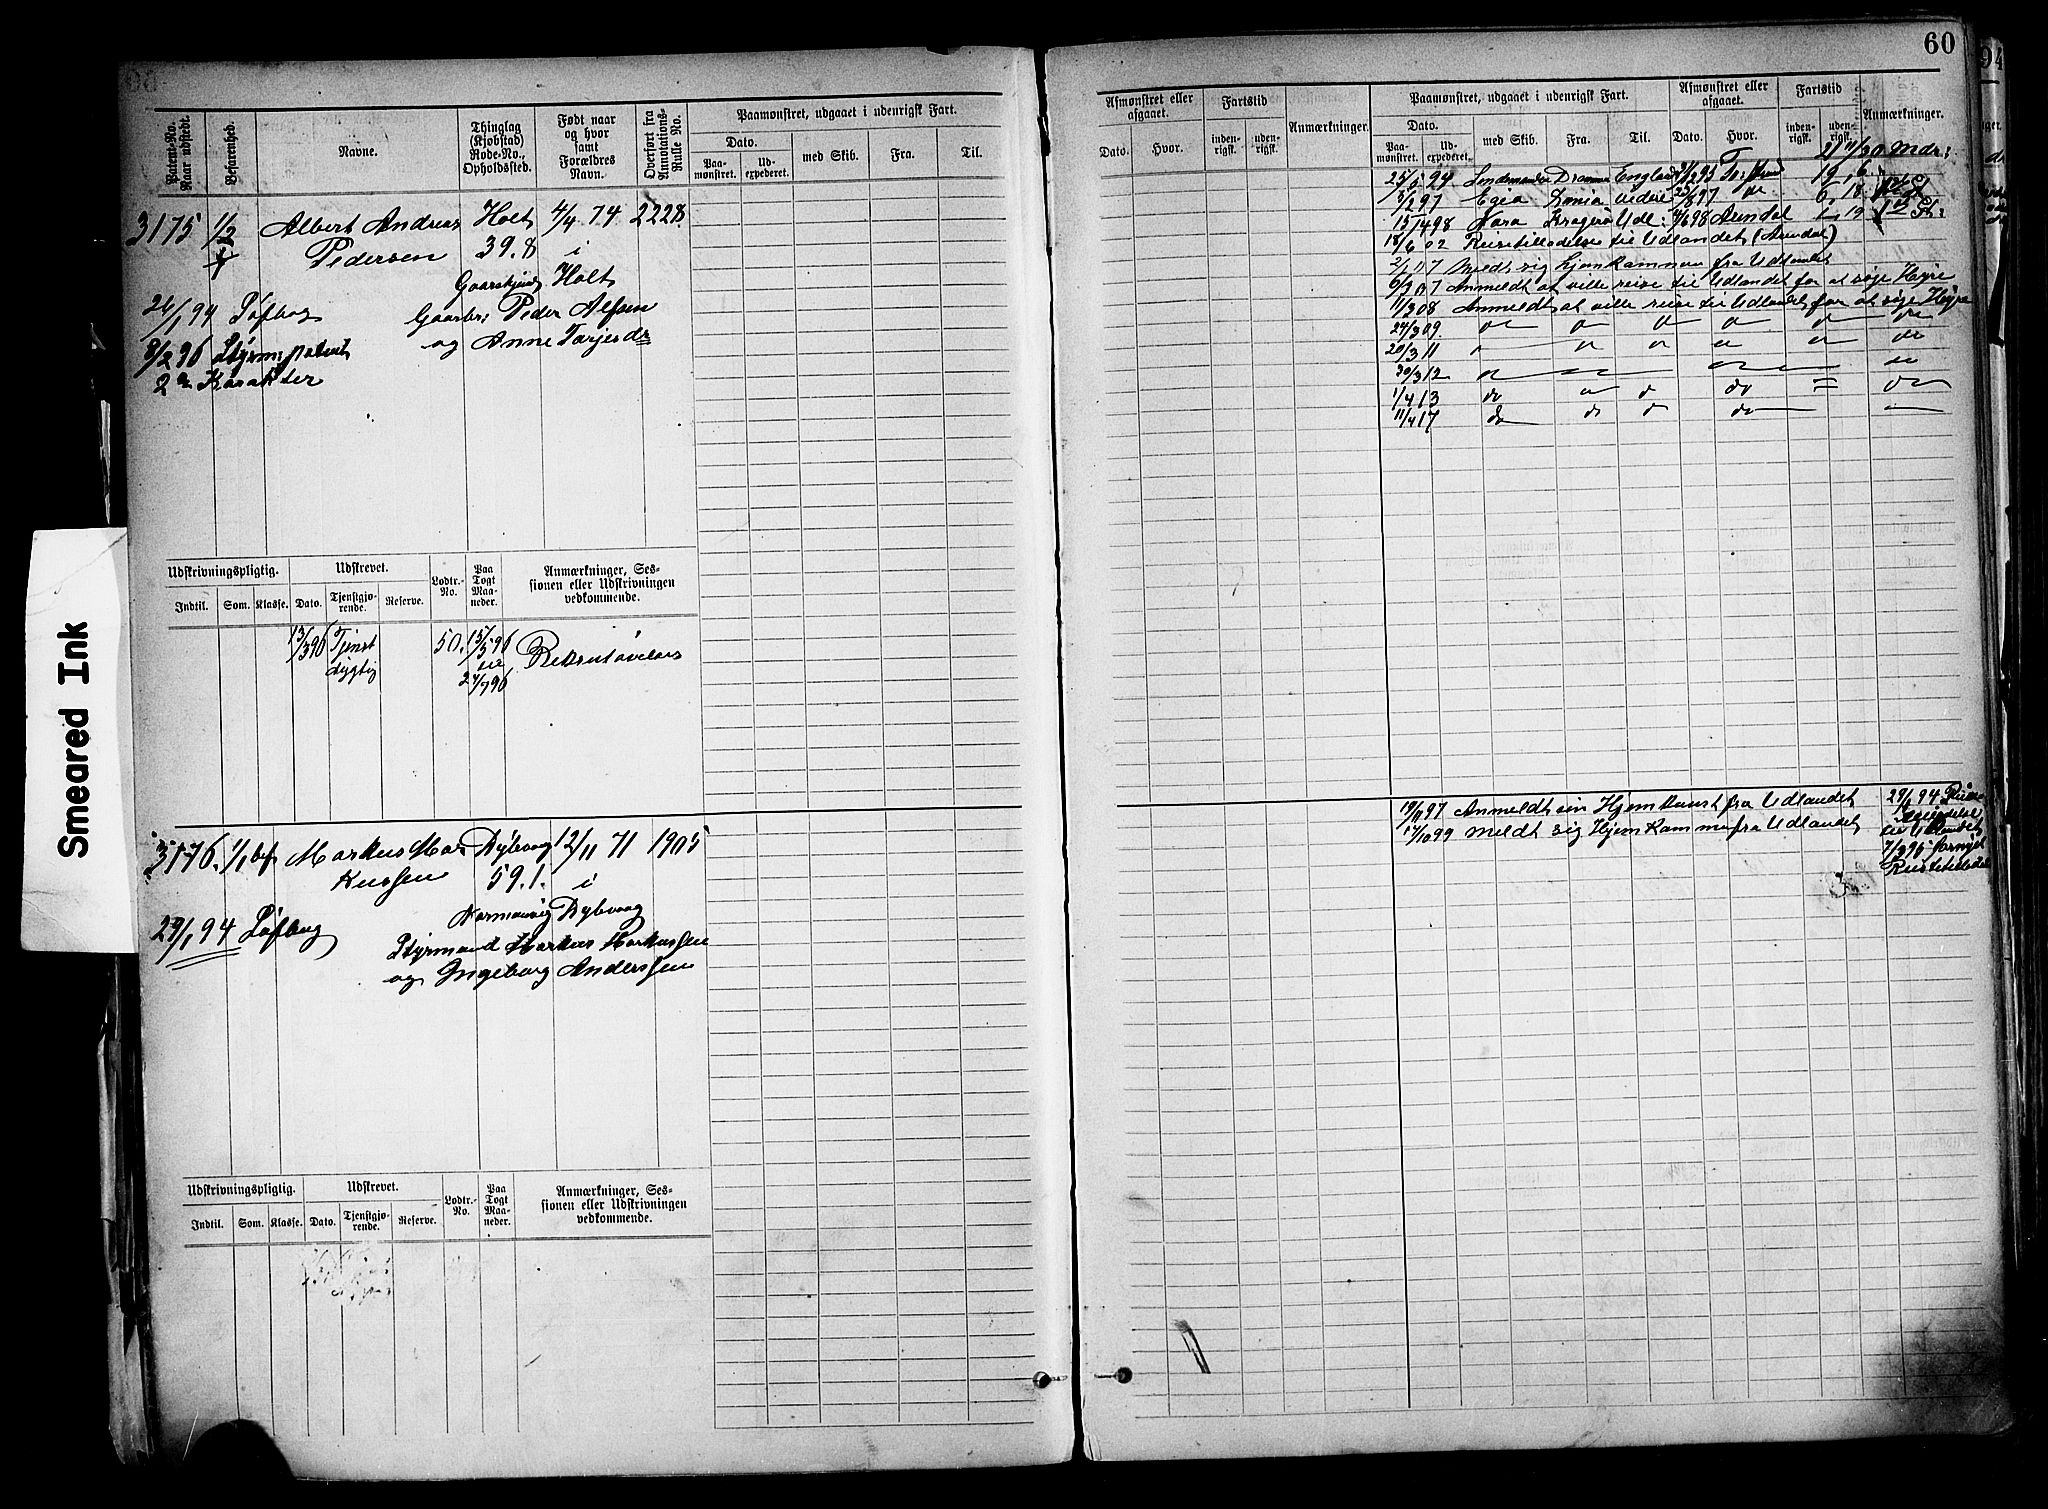 60
Patent-No. Naar udstedt.
Befarenhed.
Navne.
Thinglag (Kjøbstad) Rode-No., Opholdssted.
Født naar og hvor samt Forældres Navn.
Overført fra Annotations-Rulle No.
Paamønstret, udgaaet i udenrigsk Fart.
Dato.
Paamønstret.
Udexpederet.
med Skib.
Fra.
Til.
Afmønstret eller afgaaet.
Dato.
Hvor.
Fartstid
indenrigsk.
udenrigsk.
Anmærkninger.
Paamønstret, udgaaet i udenrigsk Fart.
Dato.
Paamønstret.
Udexpederet.
med Skib.
Fra.
Til.
Afmønstret eller afgaaet.
Dato.
Hvor.
Fartstid
indenrigsk.
udenrigsk.
Anmærkninger.
3175 1/2 Albert Andreas Pedersen
Holt 39.8
4/4 74 i Holt
2228.
24/1 94 Søfbog
Gaarbr: Peder Alfsen
og Anne Tarjesdr
8/2 96 Styrm: Patent
2 Karakter
25/5 94 Drammen England
3/2 97 Egea
13/4 98 Kragerø Udl: 98 Arendal
18/6 02 Reisetilladelse til Udlandet (Arendal)
07 Meldt sig hjemkammen fra Udlandet
6/3 07 Anmeldt at ville reise til Udlandet for at søge Hyre
11/3 08 Anmeldt at ville reise til Udlandet for at søge Hyre
24/3 09. do
20/3 11
30/3 12
1/4 13 do do do
11/4 17 do do do do
Udskrivningspligtig.
Indtil. Som. Klasse.
Udskrevet.
Dato. Tjenstgjørende. Reserve.
Lodtr.-No.
Paa Togt Maaneder.
Anmærkninger, Sessionen eller Udskrivningen vedkommende.
13/3 96 Tjenst dygtig
50.
15/5 96 til 24/7 96
Rekrutøvelse
Smeared Ink
3176. 1/1 bef Markus Markussen
Dybvaag 59.1.
12/11 71 i Dybvaag
1905
29/1 94 Søfbog
Styrmand Markus Markussen
og Ingeborg Anderssen
19/11 97 Anmeldt sin Hjemkomst fra Udlandet
17/10 99 Meldt sig Hjemkammen fra Udlandet
29/1 94 Reisetilladelse til Udlandet
7/3 95 fornyet
Udskrivningspligtig.
Indtil. Som. Klasse.
Udskrevet.
Dato. Tjenstgjørende. Reserve.
Lodtr.-No.
Paa Togt Maaneder.
Anmærkninger, Sessionen eller Udskrivningen vedkommende.